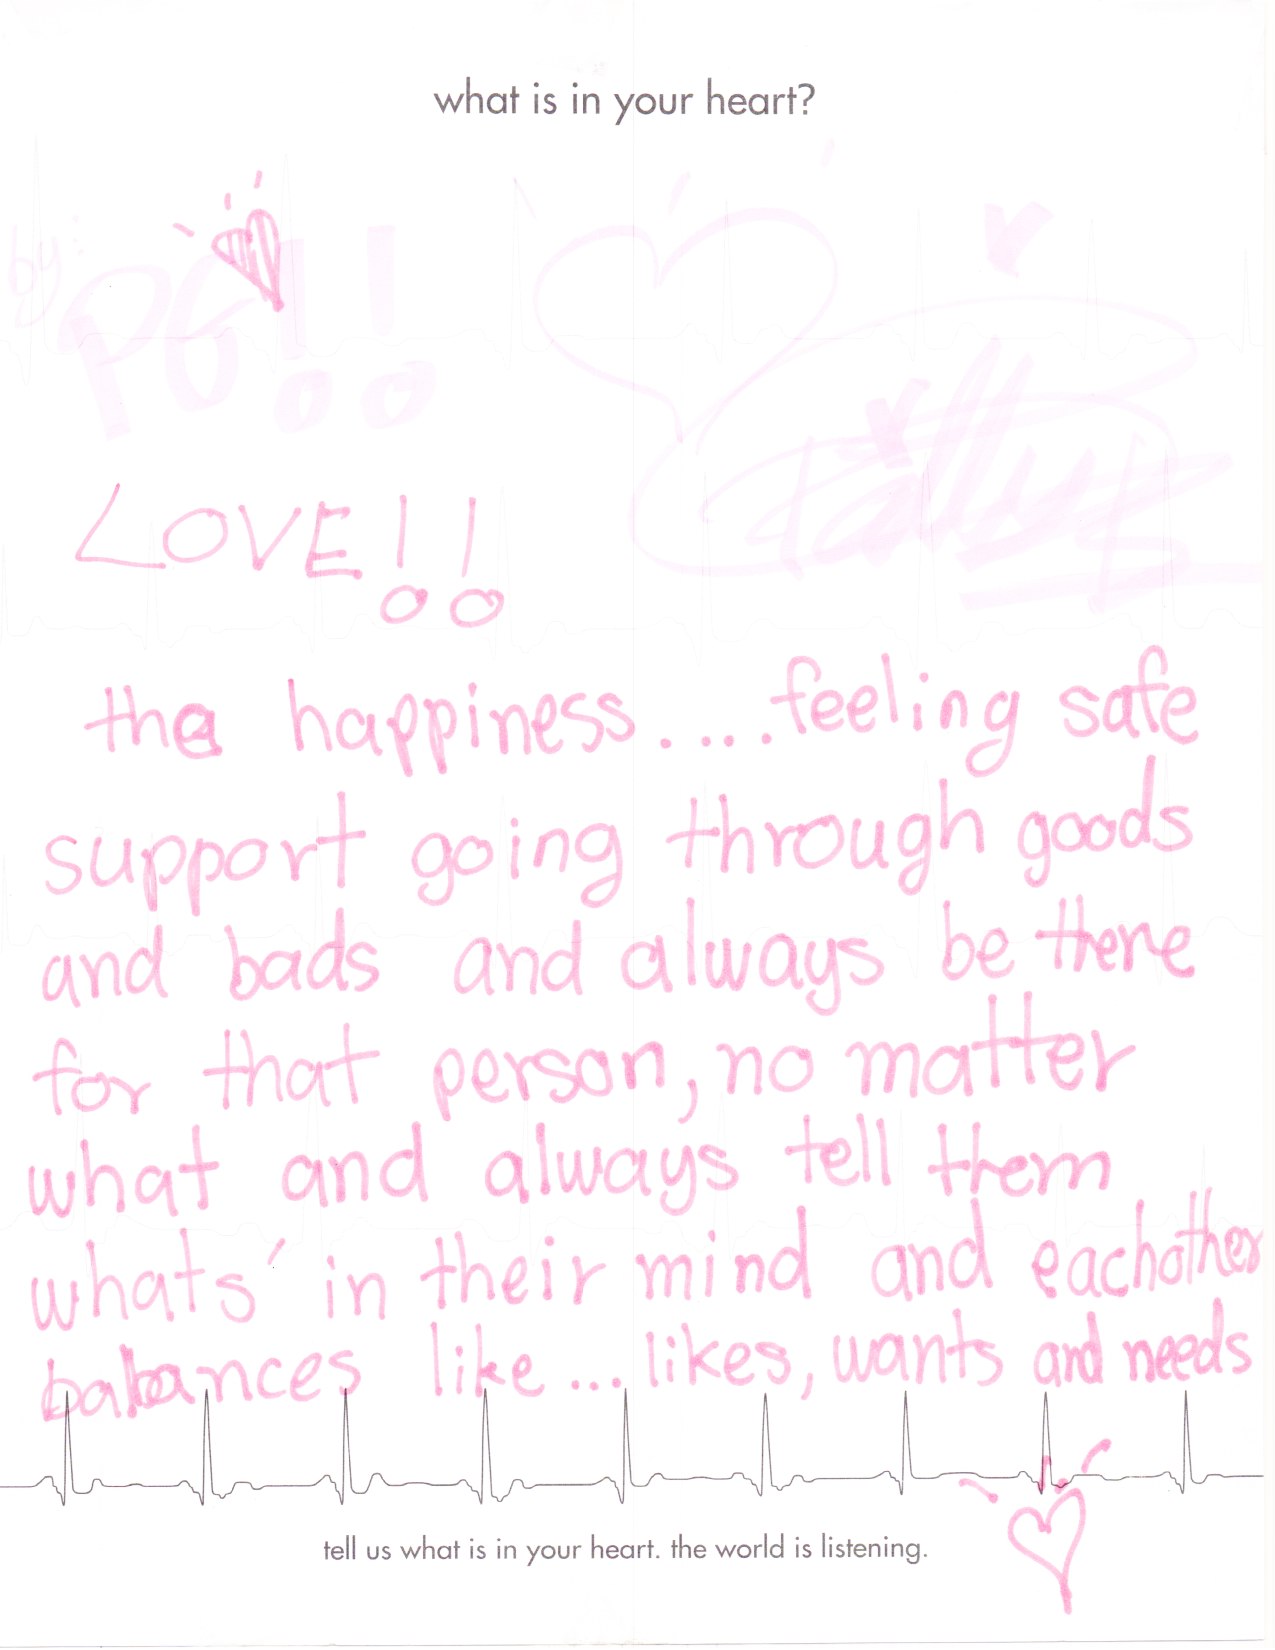 what is in your heart?
by PG!!
Patty
LOVE!!
the happiness.....feeling safe
support going through goods
and bads and always be there
for that person, no matter
what and always tell them
whats' in their mind and eachother
balances like... likes, wants and needs
tell us what is in your heart. the world is listening.